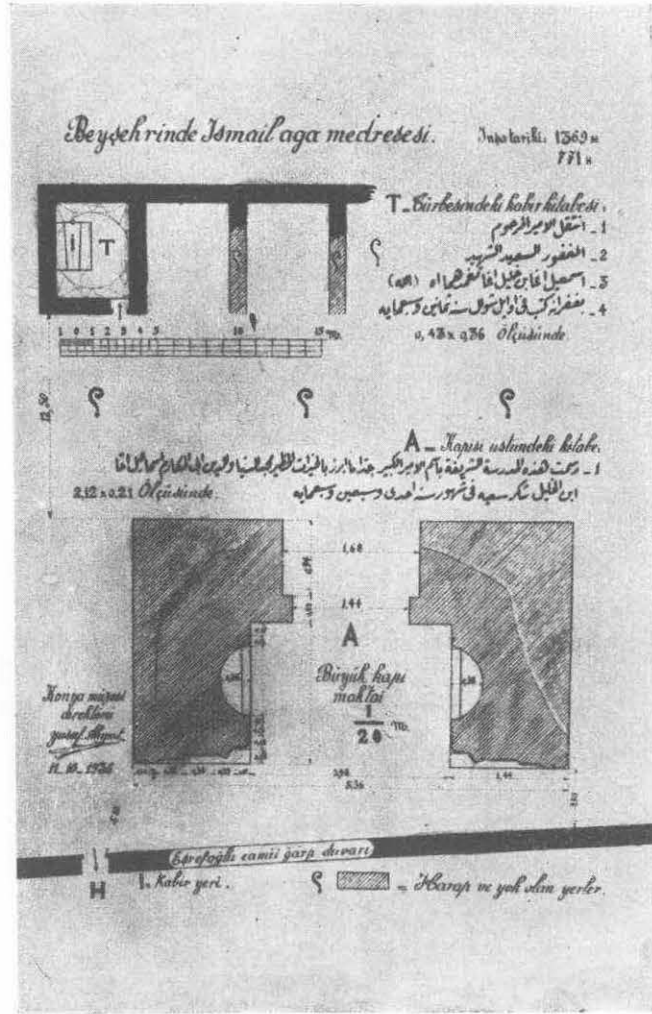 Beyşehrinde İsmail aga medresesi.
İnşa tarihi. 1369 M
771 H
T - Türbesindeki kabir kitabesi.
1 - انتقل الامير المرحوم
2 - المغفور السعيد الشهيد
3 - اسمعيل اغا ابن خليل اغا (الله)
4 - بغفرانه فى اوايل شوال سنه ثمانين وسبعمايه
0,43 x 0,36 Ölçüsünde
İ T
3
1 0 1 2 3 4 5 10 15 m.
؟ ؟ ؟
12,50
A - Kapısı üstündeki kitabe.
1 - رسمت هذه المدرسة الشريفة الامير الكبير اسماعيل اغا
ابن الخليل شكر سعيه فى شهور سنه احدى وسبعين وسبعمايه
2,12 x 0,21 Ölçüsünde.
1,68
1,44
A
Büyük kapı
maktai
1
20 m.
Konya müzesi
direktörü
Yusuf Akyurt
11-10-1936
5,36
1,44
Eşrefoğlu camii garp duvarı
H
İ - Kabir yeri.
؟ = Harap ve yok olan yerler.